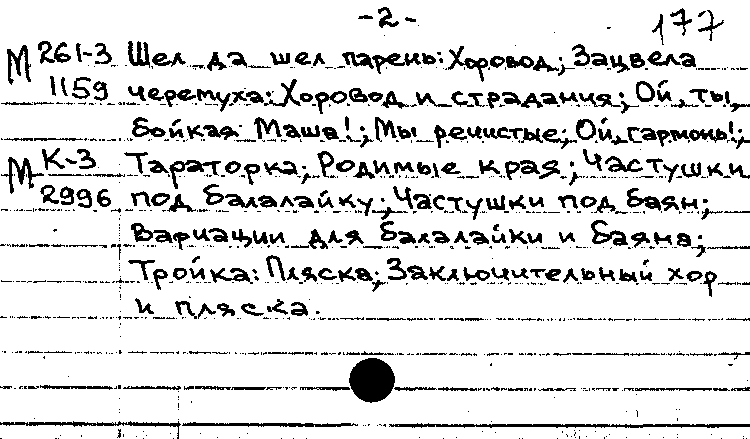 -2-
177
М 261-3 Шел да шел парень: Хоровод; Зацвела
1159 черемуха: Хоровод и страдания; Ой, ты,
бойкая Маша!; Мы речистые; Ой, гармонь!;
М К-3 Тараторка; Родимые края; Частушки
2996 под балалайку; Частушки под баян;
Вариации для балалайки и баяна;
Тройка: Пляска; Заключительный хор
и пляска.